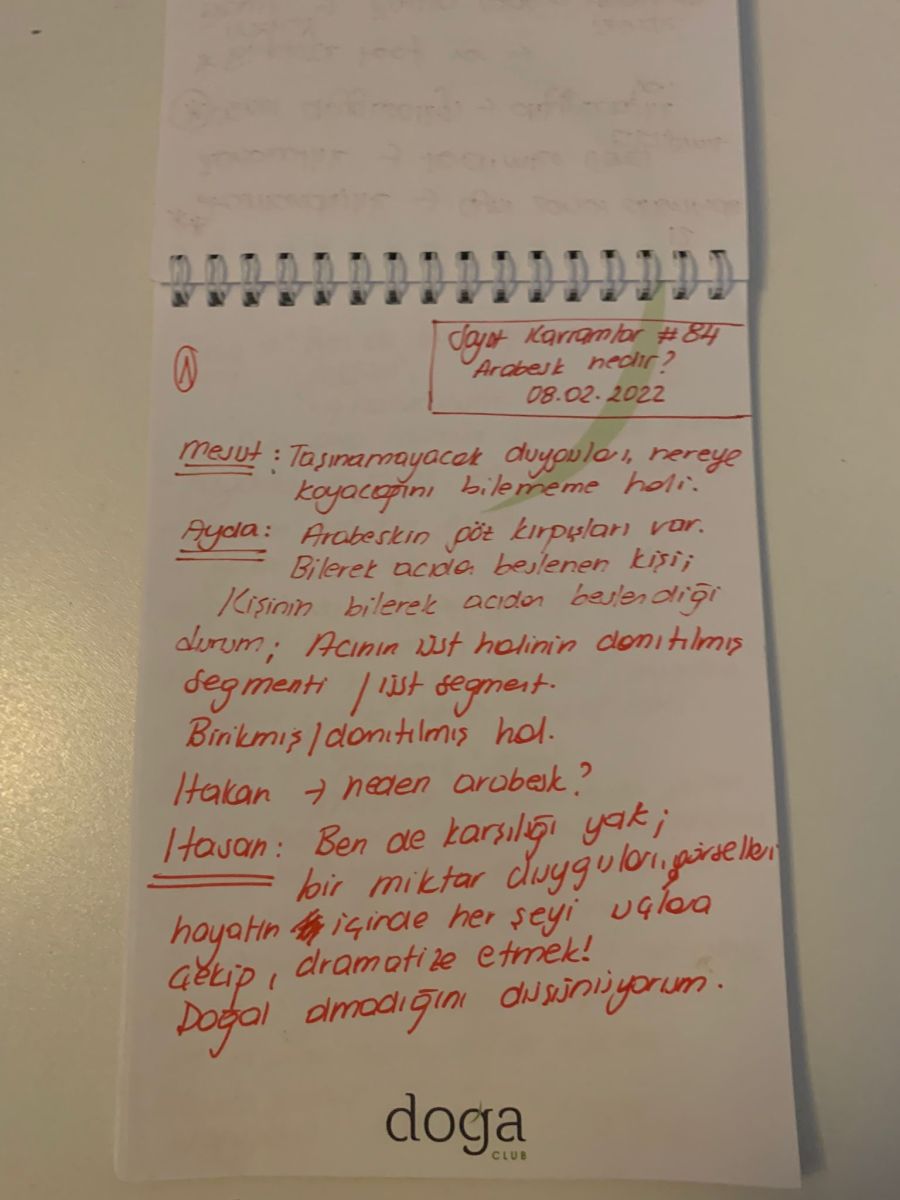 Soyut Kavramlar #84
Arabesk nedir?
08.02.2022
1
Mesut: Taşınamayacak duyguları, nereye
koyacağını bilememe hali.
Ayda: Arabeskin göz kırpışları var.
Bilerek acıdan beslenen kişi;
Kişinin bilerek acıdan beslendiği
durum; Acının üst halinin damıtılmış
segmenti / üst segment.
Birikmiş / damıtılmış hal.
Hakan → neden arabesk?
Hasan: Ben de karşılığı yok;
bir miktar duyguları, görselleri
hayatın içinde her şeyi uçlara
çekip, dramatize etmek!
Doğal olmadığını düşünüyorum.
doğa
CLUB